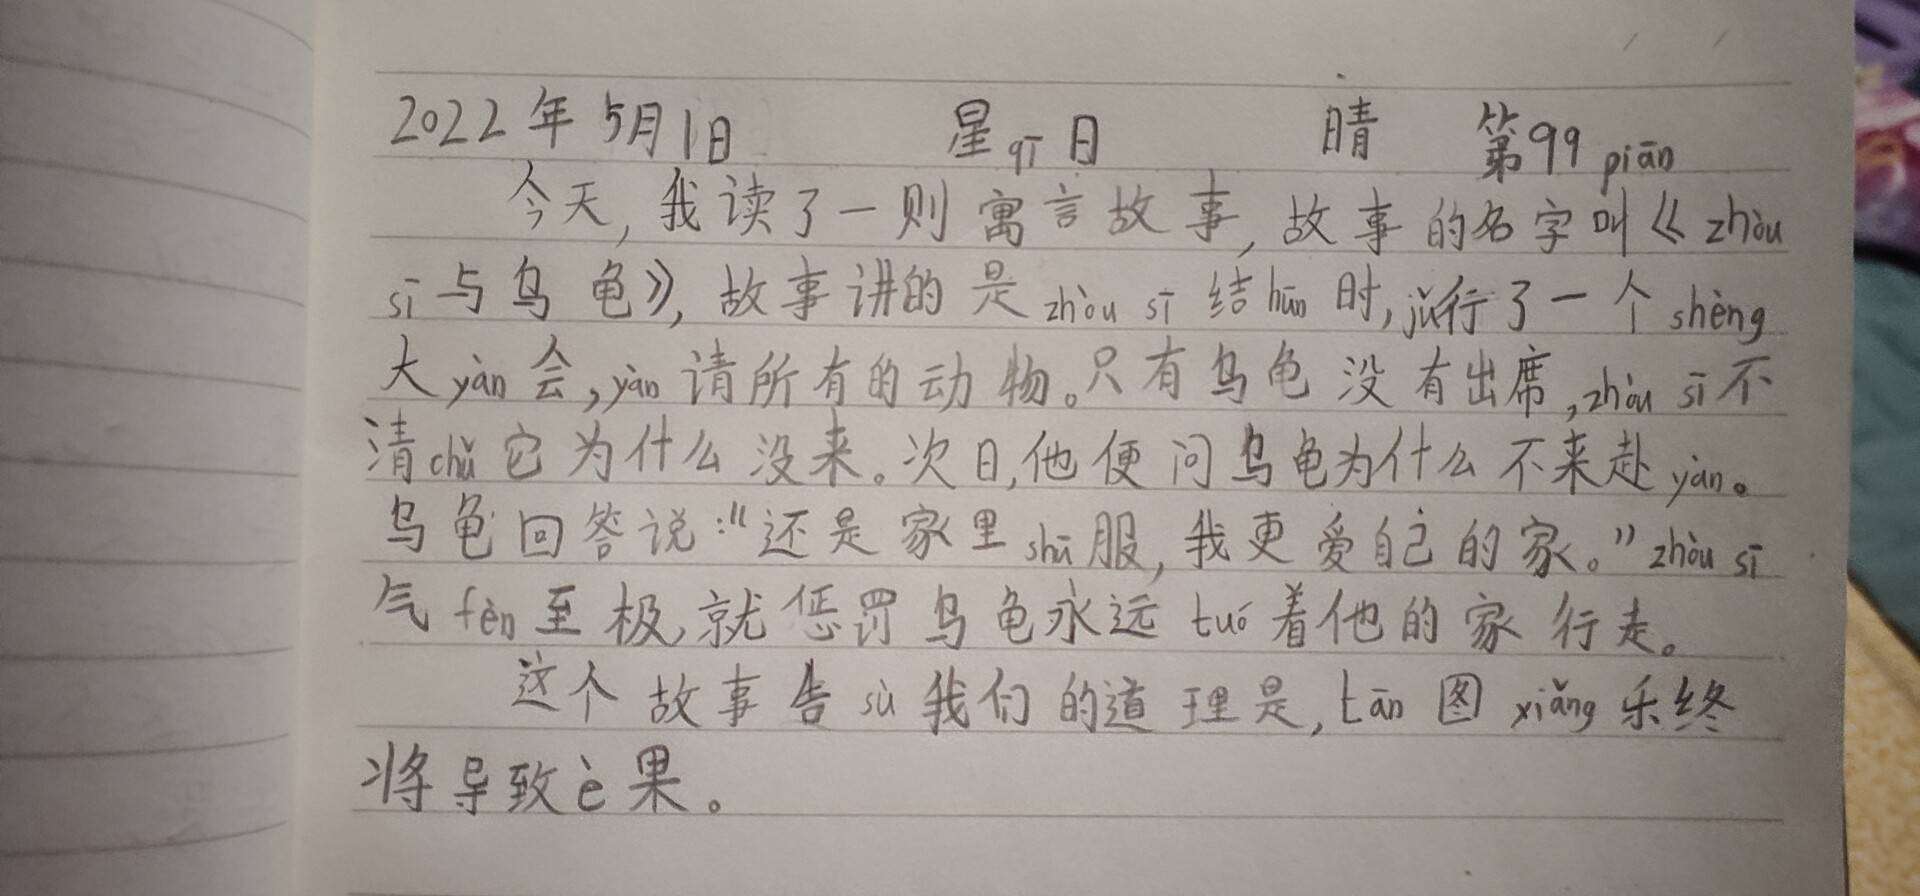 2022年5月1日 星qī日 晴 第99piān
今天,我读了一则寓言故事,故事的名字叫《zhòu
sī与乌龟》,故事讲的是zhòu sī结hūn时,jǔ行了一个shèng
大yàn会,yàn请所有的动物。只有乌龟没有出席,zhòu sī不
清chǔ它为什么没来。次日,他便问乌龟为什么不来赴yàn。
乌龟回答说:“还是家里shū服,我更爱自己的家。”zhòu sī
气fèn至极,就惩罚乌龟永远tuó着他的家行走。
这个故事告sù我们的道理是,tān图xiǎng乐终
将导致è果。